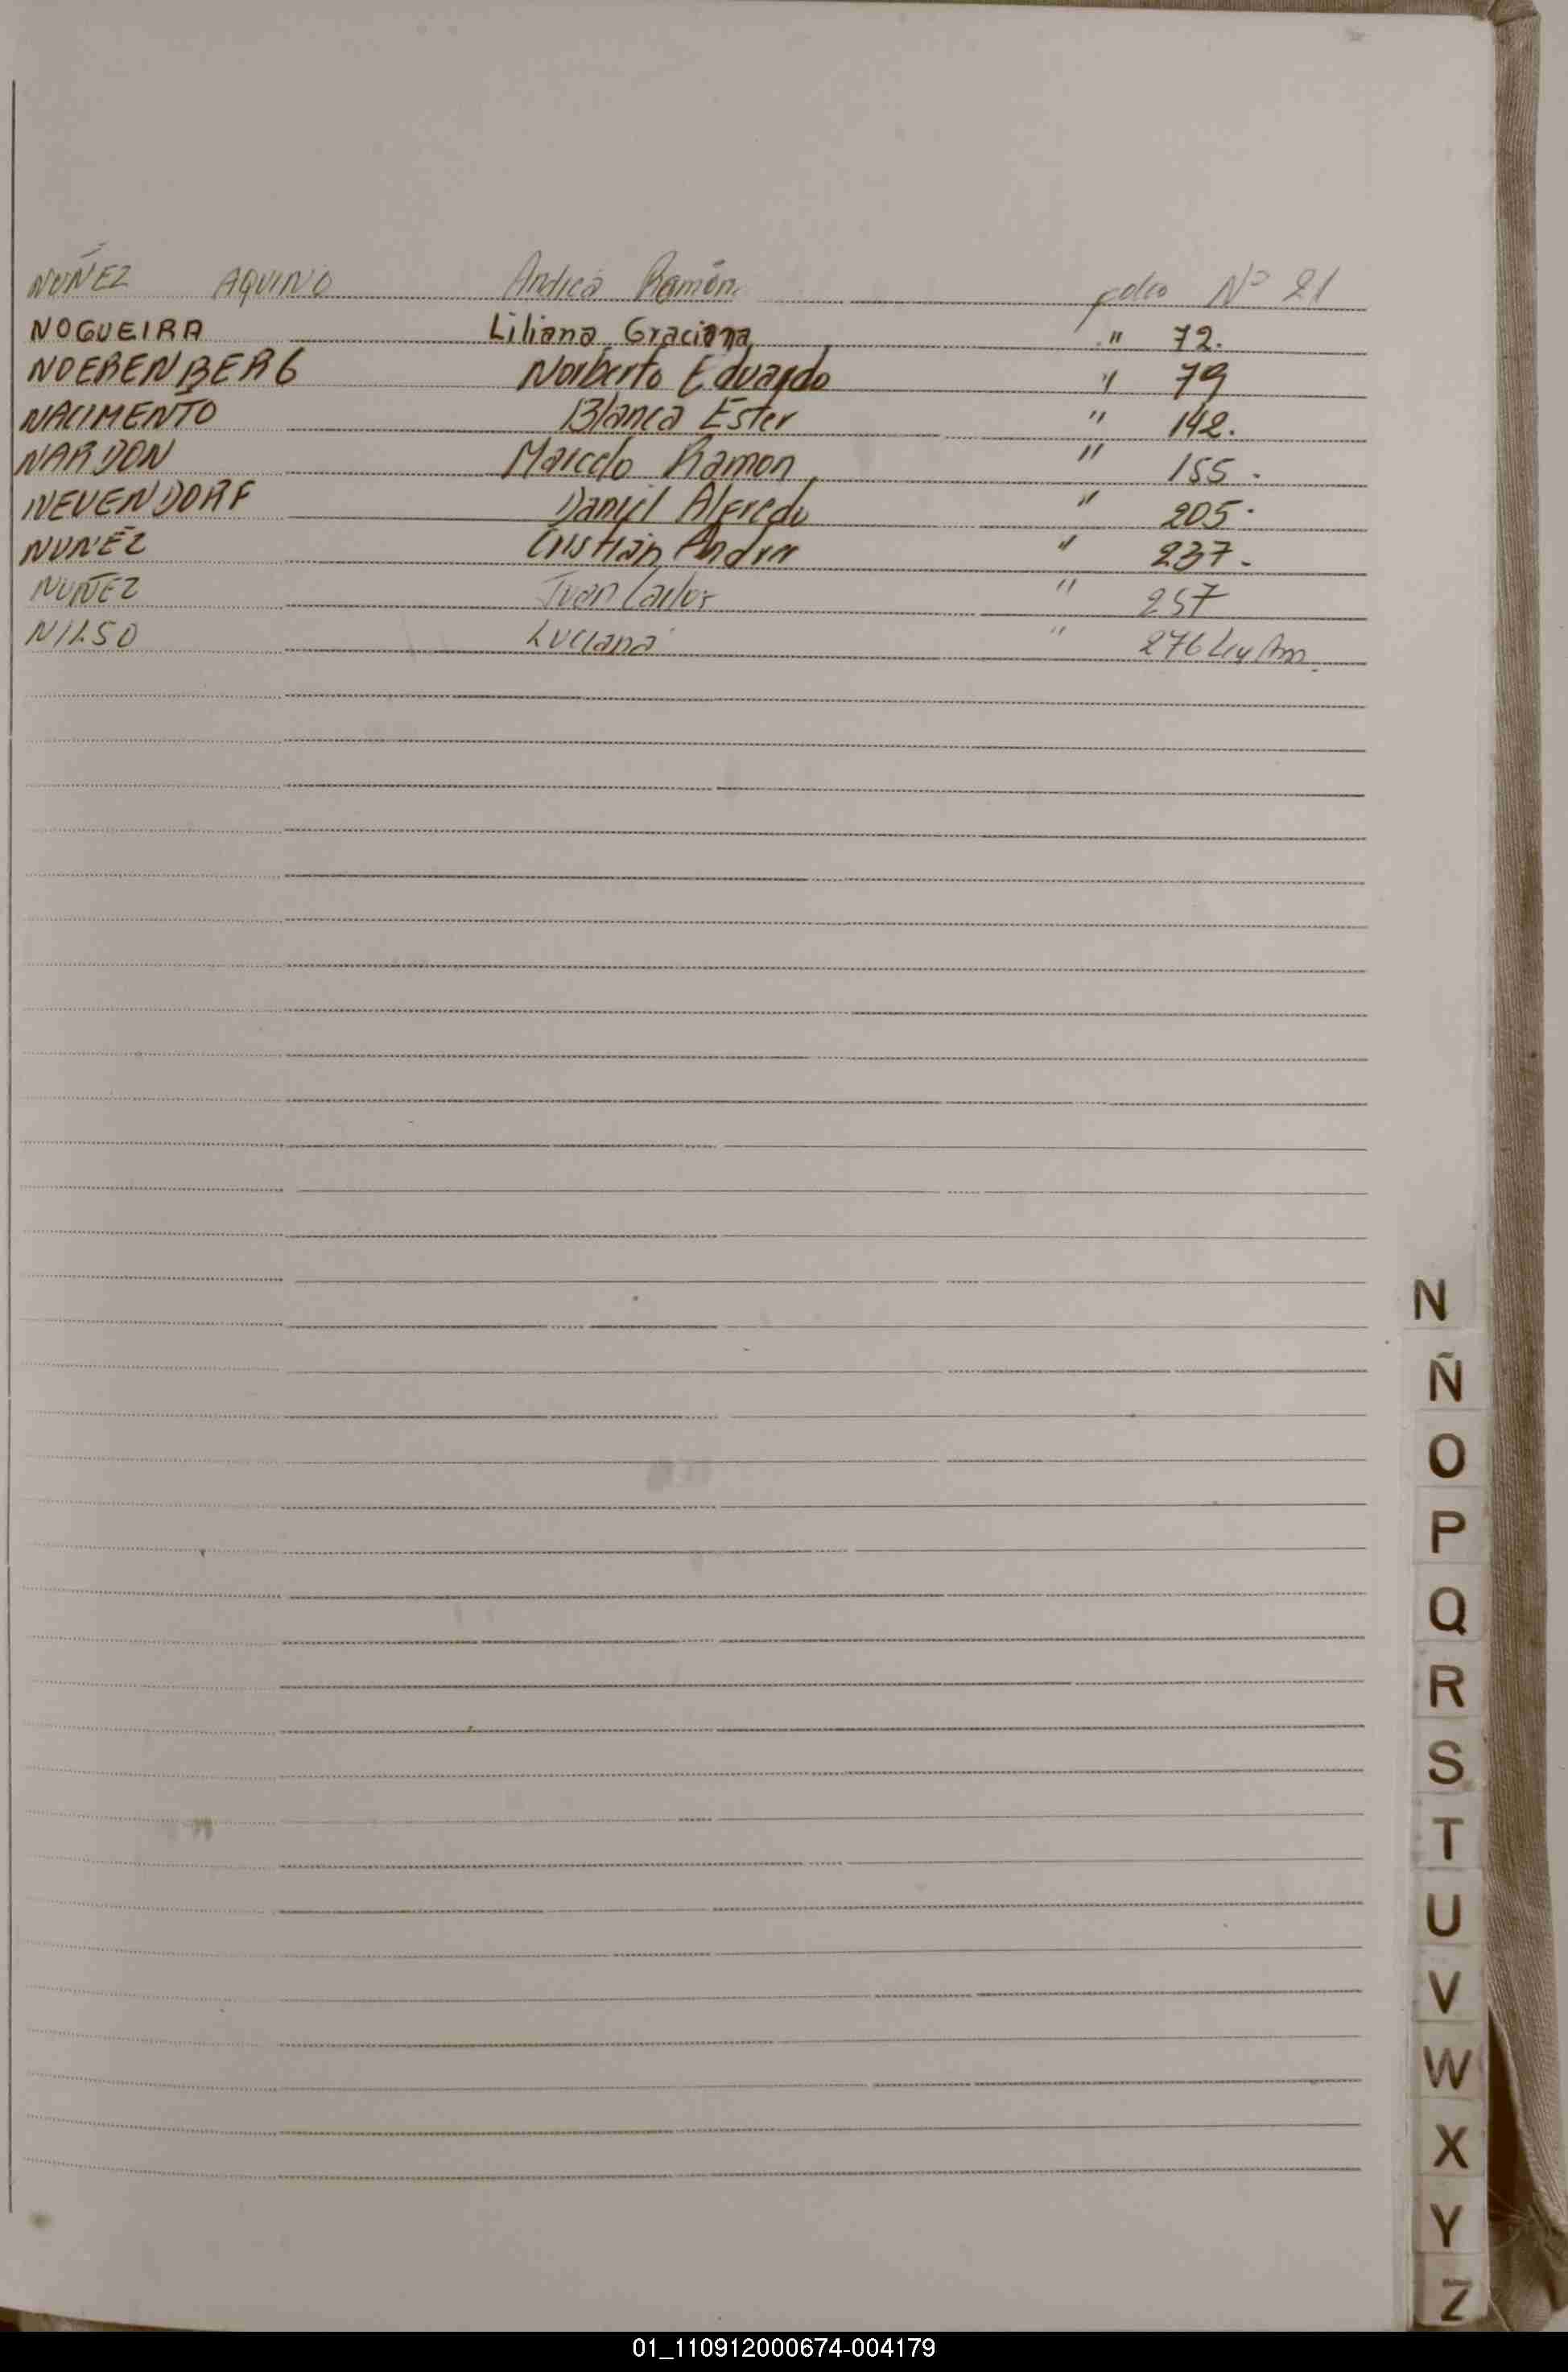 NUÑEZ AQUINO Andrea Ramón folio Nº 21
NOGUEIRA Liliana Graciana " 72.
NOERENBERG Norberto Eduardo " 79
NACIMENTO Blanca Ester " 142.
NARDON Marcelo Ramon " 155.
NEVENDORF Daniel Alfredo " 205.
NUÑEZ Cristian " 237.
NUÑEZ Juan Carlos " 257
Luciana " 276 Ley
N
Ñ
O
P
Q
R
S
T
U
V
W
X
Y
Z
01_110912000674-004179